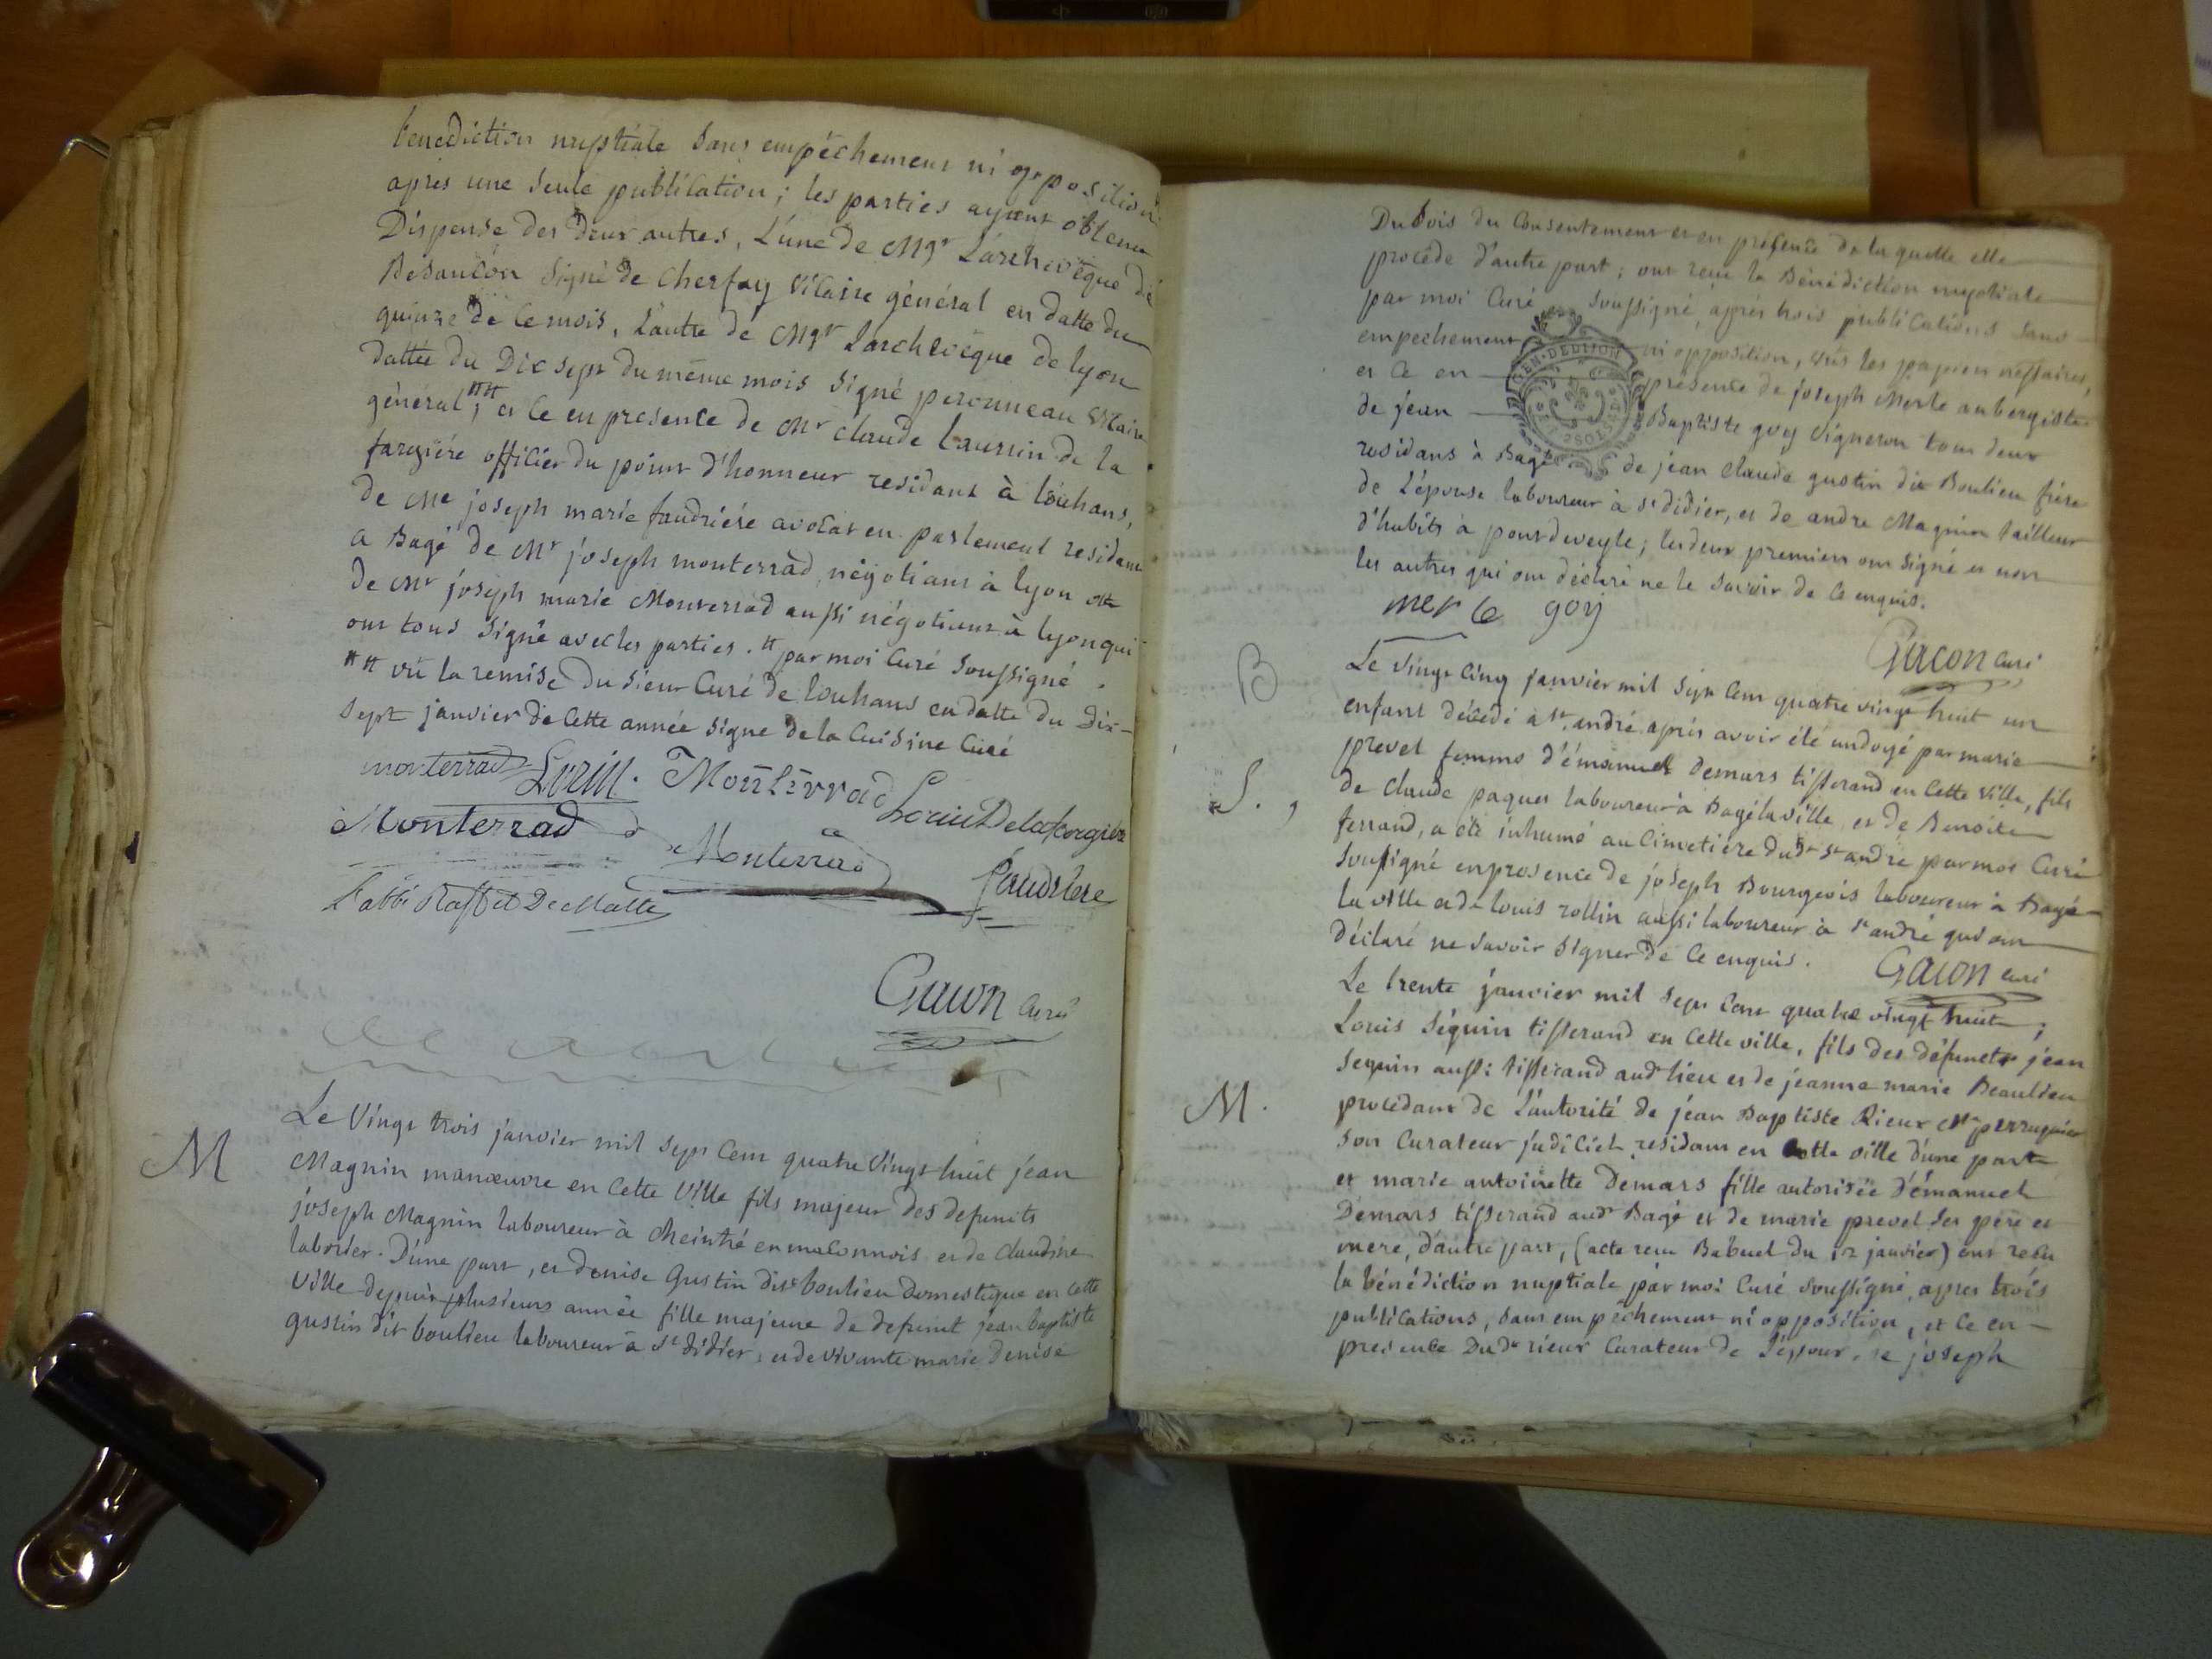 benediction nuptiale sans empéchement ni opposition
après une seule publication; les parties ayant obtenu
Dispense des deux autres, L'une de Mgr L'archevêque de
Besancon signé de Cherfay Vicaire général en datte du
quinze de ce mois, L'autre de Mgr Larchevêque de lyon
dattée du Dix sept du même mois signé peronneau vicaire
général; et ce en presence de Mr claude Laurin de la
fargiére officier du point d'honneur residant à Louhans,
de Me joseph marie faudriére avocat en parlement residant
a Bagé de Mr joseph monterrad négotiant à lyon
de Mr joseph marie Monterrad aussi négotiant à lyon qui
ont tous signé avec les parties. # par moi Curé soussigné.
## vû la remise du sieur Curé de louhans en datte du Dix-
sept janvier de cette année signe de la Cuisine Curé
monterrad Lorin. Monterrad
Lorin Delafargiere
Monterrad
Monterrad
faudriere
L'abbé
Gacon curé
M
Le vingt trois janvier mil sept cent quatre vingt huit jean
Magnin manœuvre en cette ville fils majeur des defunts
joseph Magnin laboureur à cheintré en maconnois et de claudine
laborier. D'une part, et denise Gustin dit boulieu Domestique en cette
ville depuis plusieurs année fille majeure de defunt jean baptiste
gustin dit boulieu laboureur à st didier, et de vivante marie denise
Dubois du consentement et en présence de la quelle elle
procède d'autre part; ont reçu la Bénédiction nuptiale
par moi Curé soussigné, après trois publications sans
empechement ni opposition, vus les papiers nessaires,
GEN. DE DIJON
et ce en présence de joseph Merle aubergiste
de jean Baptiste goy vigneron tous deux
residans à Bagé de jean claude gustin dit Boulieu frère
de L'épouse laboureur à st didier, et de andre Magnin tailleur
d'habits à pontdeveyle; les deux premiers ont signé et non
les autres qui ont déclaré ne le savoir de ce enquis.
merle goy
Gacon curé
B
Le vingt cinq janvier mil sept cent quatre vingt huit un
enfant décédé a st andré après avoir été undoyé par marie
prevel femme d'émanuel demars tisserand en cette ville, fils
S.
de claude paquet laboureur à Bagé la ville et de Benoite
ferrand, a été inhumé au Cimetiére dudt st andré par moi Curé
soussigné en presence de joseph Bourgeois laboureur à Bagé
la ville et de louis rollin aussi laboureur à st andré qui ont
déclaré ne savoir signer de ce enquis.
Gacon curé
Le trente janvier mil sept cent quatre vingt huit;
Louis Séguin tisserand en cette ville, fils des défunets jean
Seguin aussi tisserand audt lieu et de jeanne marie Beaulieu
M.
procedant de L'autorité de jean Baptiste Rieux Mr perruquier
son Curateur judiciel residant en cette ville d'une part
et marie antoinette Demars fille autorisée d'émanuel
Démars tisserand audt Bagé et de marie prevel ses père et
mere, d'autre part, (acte reçu Babuel du 12 janvier) ont reçu
la bénédiction nuptiale par moi Curé soussigné, apres trois
publications, sans empêchement ni opposition, et ce en
presence Dudt rieux Curateur de L'époux, de joseph